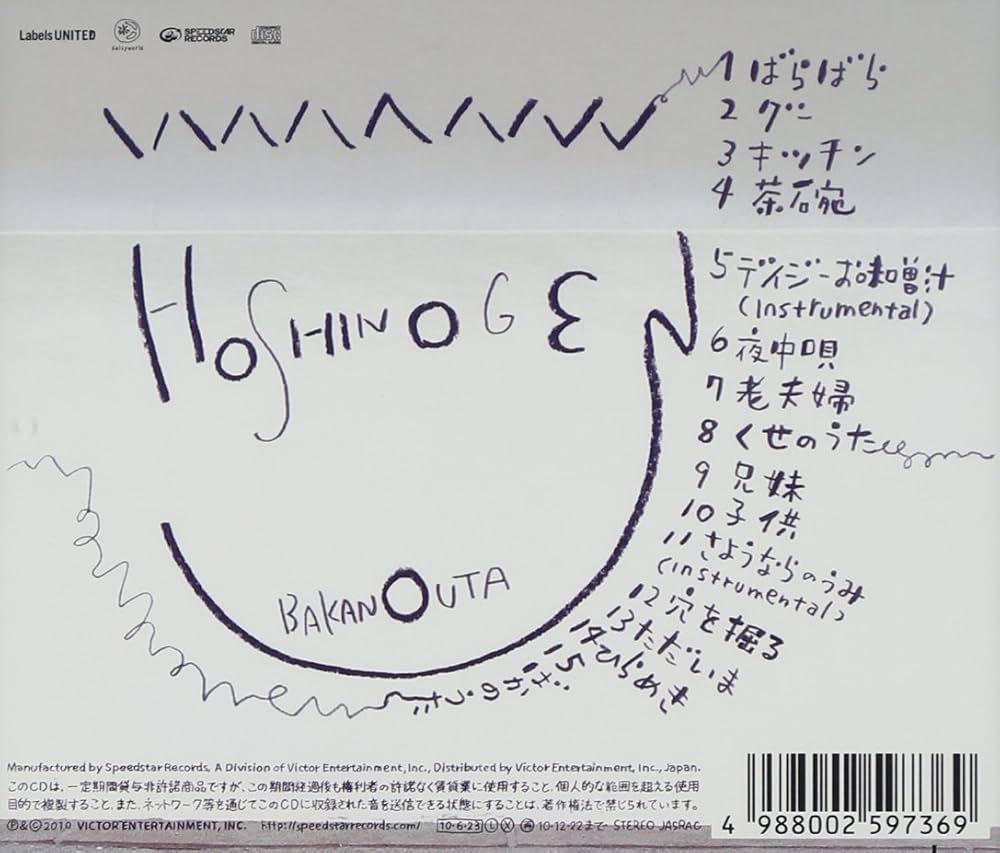 Labels UNITED
daisyworld
SPEEDSTAR RECORDS
COMPACT disc DIGITAL AUDIO
1 ばらばら
2 グー
3 キッチン
4 茶碗
5 デイジーお味噌汁
(Instrumental)
6 夜中唄
7 老夫婦
8 くせのうた
9 兄妹
10 子供
11 さようならのうみ
(instrumental)
12 穴を掘る
13 ただいま
14 ひらめき
15 ばかのうた
HOSHINO GEN
BAKANOUTA
Manufactured by Speedstar Records, A Division of Victor Entertainment, Inc., Distributed by Victor Entertainment, Inc., Japan.
このCDは、一定期間貸与非許諾商品ですが、この期間経過後も権利者の許諾なく賃貸業に使用すること、個人的な範囲を超える使用
目的で複製すること、また、ネットワーク等を通じてこのCDに収録された音を送信できる状態にすることは、著作権法で禁じられています。
Ⓟ&©2010 VICTOR ENTERTAINMENT, INC. http://speedstarrecords.com/ 10・6・23 Ⓛ Ⓧ 再 10・12・22まで STEREO JASRAC
4 988002 597369